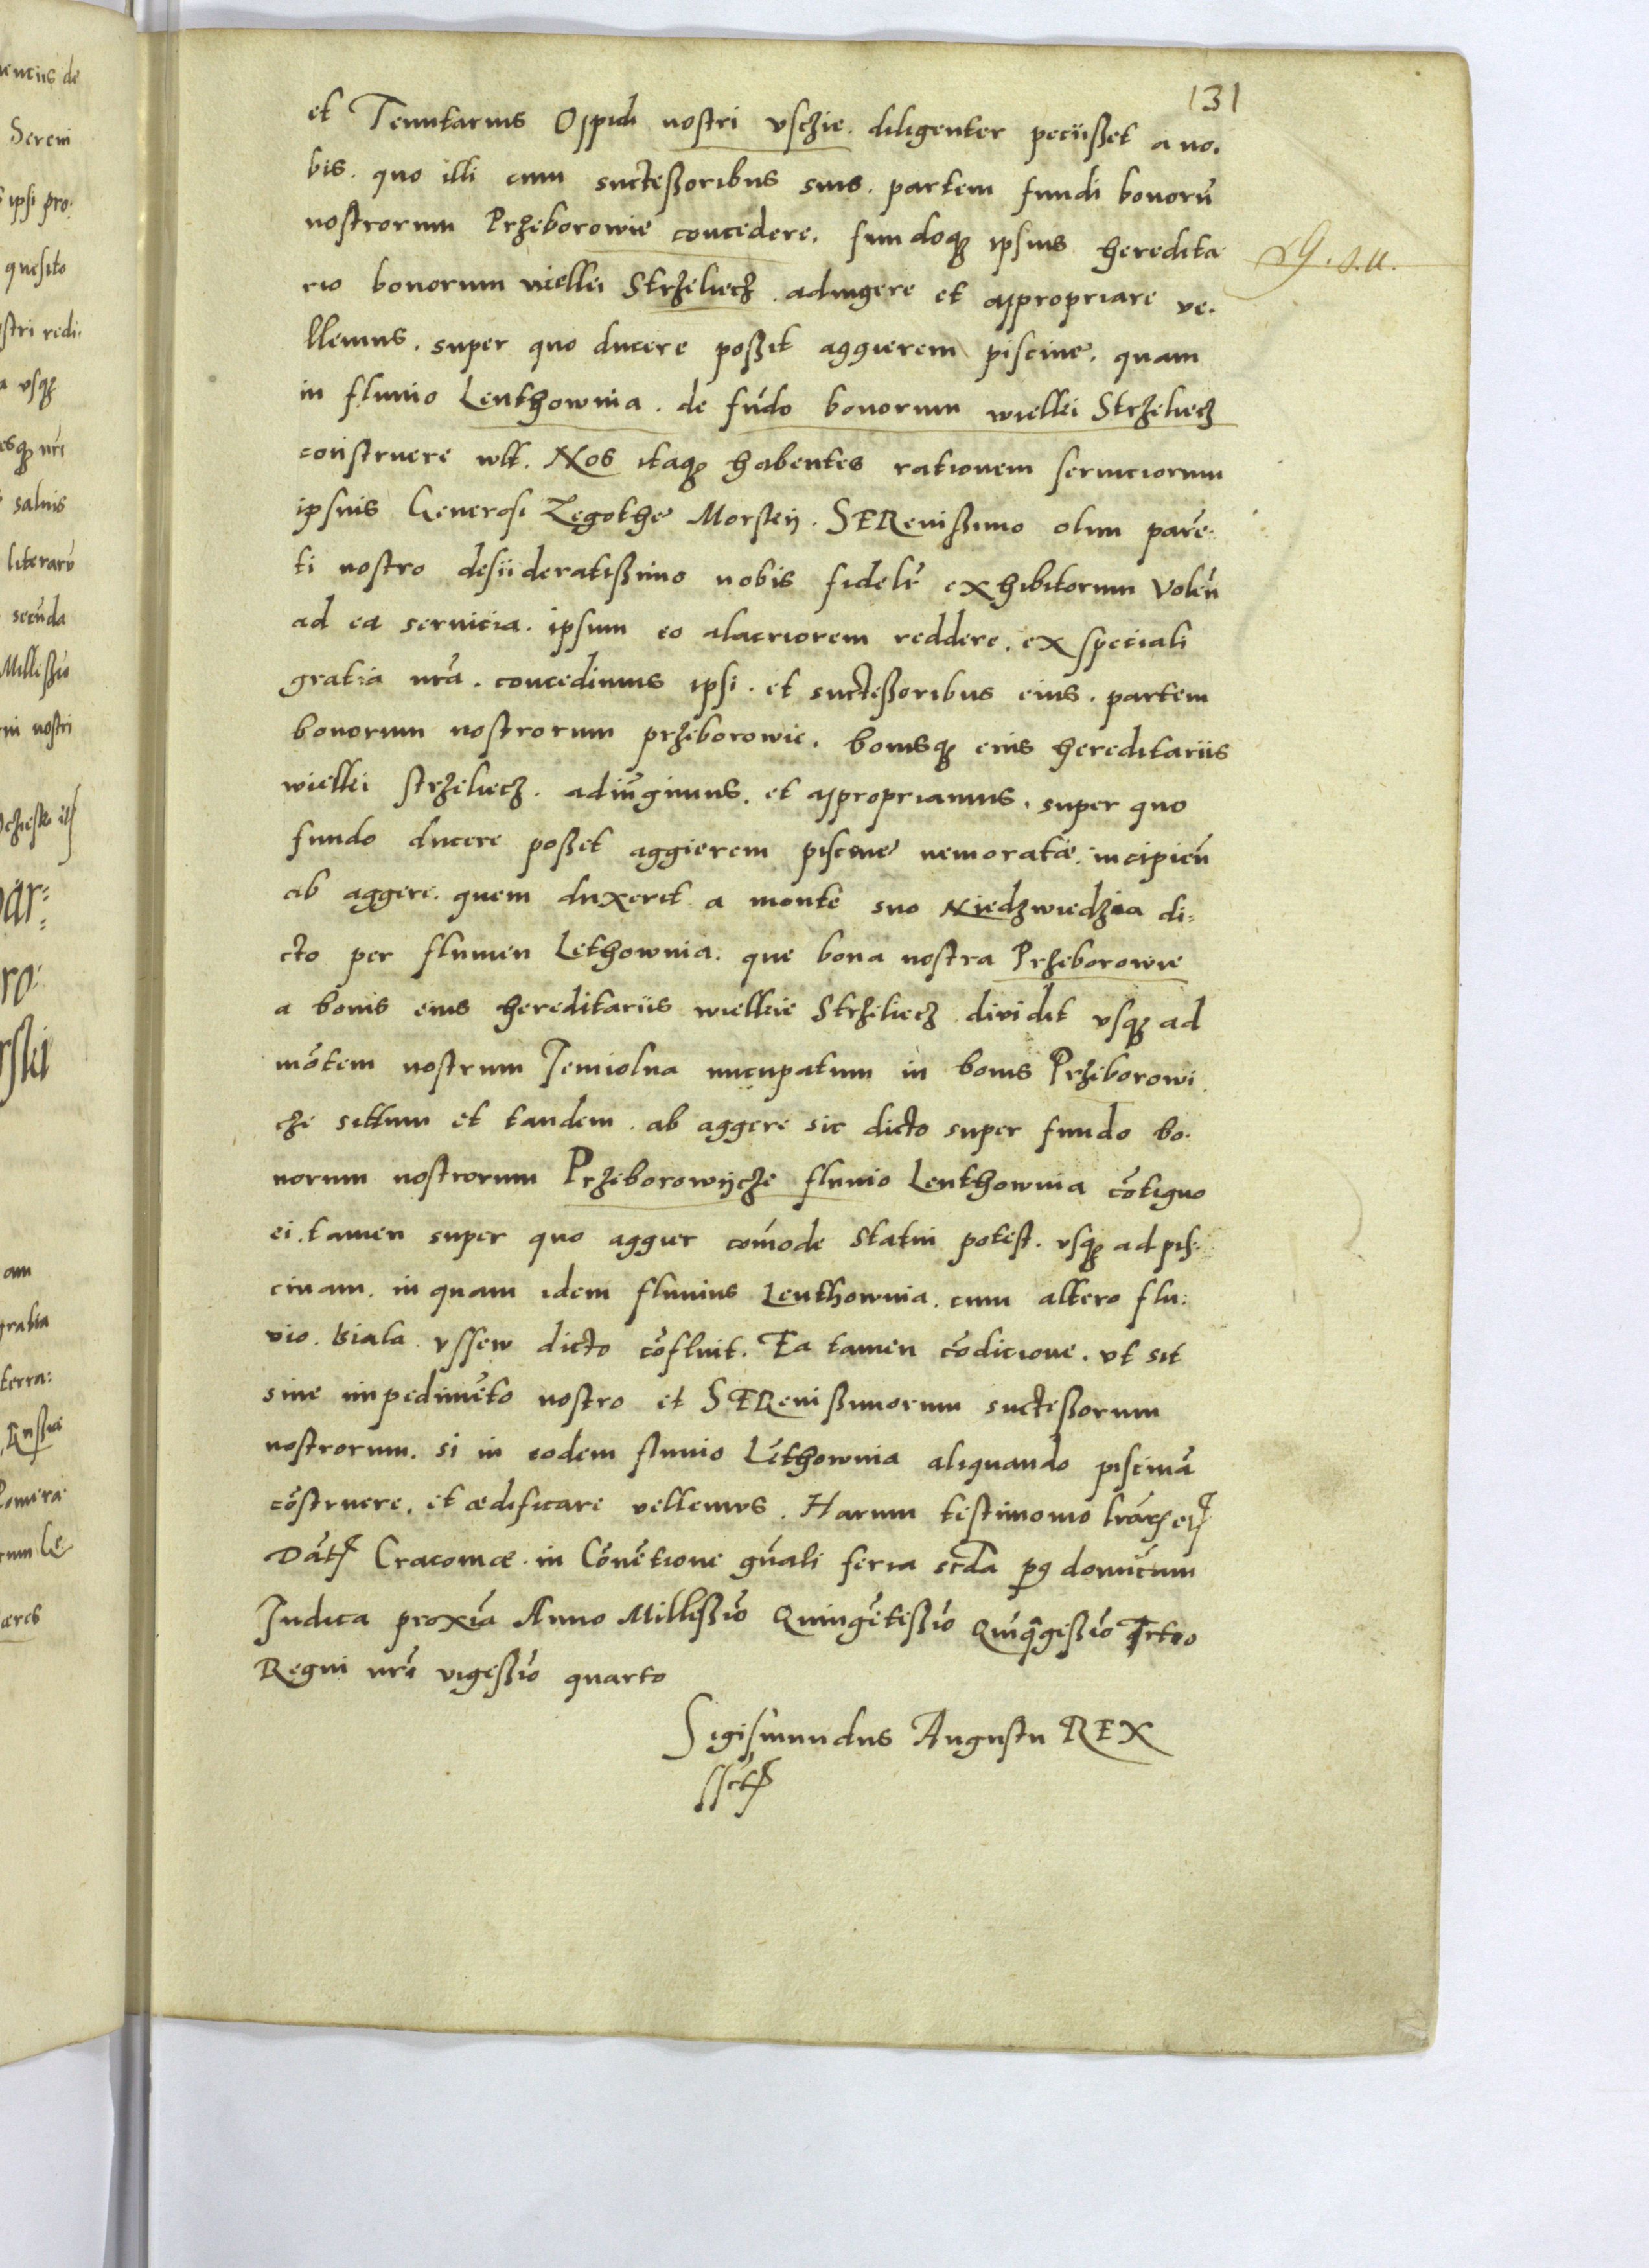 131
et Tenutarius Oppidi nostri vschie. diligenter peciisset a no.
bis. quo illi cum successoribus suis. partem fundi bonorū
nostrorum Przeborowie concedere. fundoqꝫ ipsius heredita
rio bonorum viellei Strzeliecz. adiugere et appropriare ve.
llemus. super quo ducere possit aggierem piscine. quam
in fluuio Lenthownia. de fūdo bonorum wiellei Strzeliecz
construere wlt. Nos itaqꝫ habentes rationem seruiciorum
ipsius Generosi Zegothe Morsteij. SERenissimo olim parē.
ti nostro desiideratissimo nobis fidelr̄ exhibitorum Volēn
ad ea seruicia. ipsum eo alacriorem reddere. ex speciali
gratia nrā. concedimus ipsi. et successoribus eius. partem
bonorum nostrorum przeborowie. bonisqꝫ eius hereditariis
wiellei strzeliecz. adiūgimus. et appropriamus. super quo
fundo ducere posset aggierem piscine nemoratæ. incipiēn
ab aggere. quem duxerit a monte suo Niedzwiedzia di:
cto per flumen Lethownia. que bona nostra Przeborowie
a bonis eius hereditariis wielleie Strzeliecz dividit vsqꝫ ad
mōtem nostrum Jemiolna nucupatum in bonis Przeborowi
cze sittum et tandem. ab aggere sic dicto super fundo bo.
norum nostrorum Przeborowijcze fluuio Lenthownia cōtiguo
ei. tamen super quo aggier comōde statui potest. vsqꝫ ad pis.
cinam. in quam idem fluuius Lenthownia. cum altero flu:
vio. biala vssew dicto cōfluit. Ea tamen cōdicione. vt sit
sine impedimēto nostro et SERenissimorum successorum
nostrorum. si in eodem fluuio Lēthownia aliquando piscinā
cōstruere. et ædificare vellemvs. Harum testimonio lrārꝫ etꝭ
Dātꝭ Cracouiæ. in Cōnētione gn̄ali feria scd̄a pꝯ domīcam
Iudica proxiā Anno Millessīō Quingētissīō Quīqꝫgessīō qrto
Regni nrī vigessīō quarto
Sigismundus Augustu REX
sstꝭ